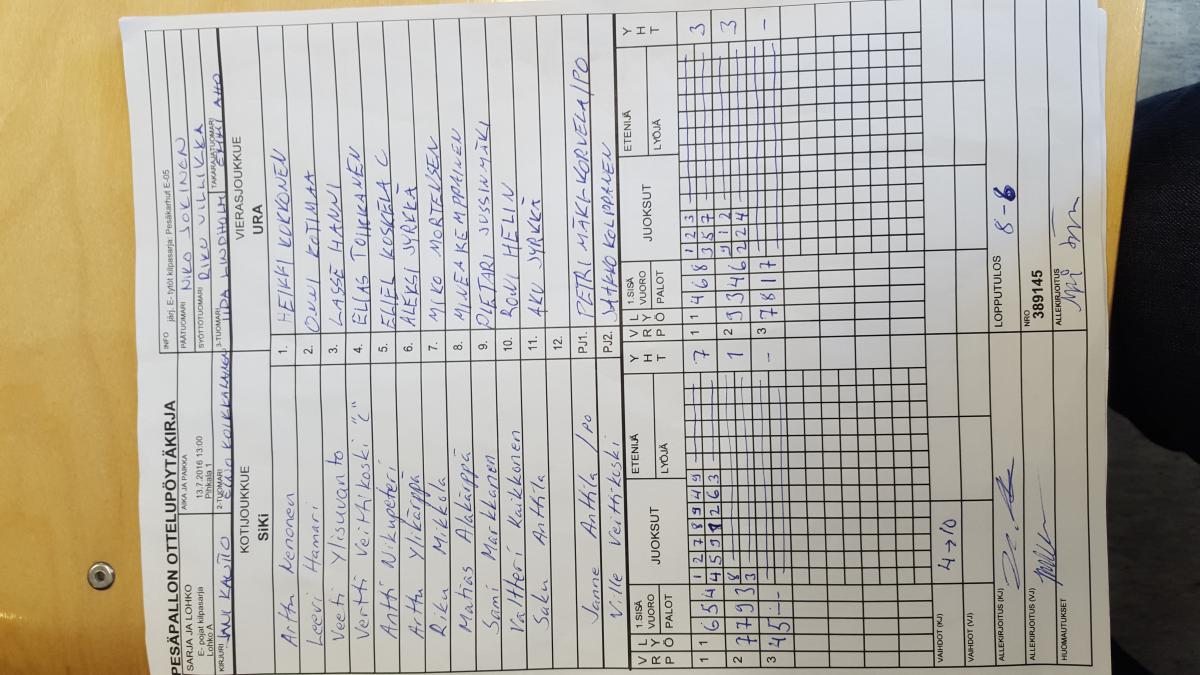 PESÄPALLON OTTELUPÖYTÄKIRJA
SARJA JA LOHKO
E- pojat kilpasarja
Lohko A
AIKA JA PAIKKA
13.7.2016 13:00
Pihkala 1
INFO järj. E- tytöt kilpasarja: Pesäkarhut E-05
PÄÄTUOMARI NIKO JOKINEN
SYÖTTÖTUOMARI RIKU VILLIKKA
KIRJURI
2-TUOMARI
3-TUOMARI IIDA LINDHOLM
TAKARAJATUOMARI ERKKI AHO
KOTIJOUKKUE
SiKi
VIERASJOUKKUE
URA
Arttu Nenonen 1. HEIKKI KUKKONEN
Leevi Hamari 2. ONNI KOTIMAA
Veeti Ylisuvanto 3. LASSE HANNI
Vertti Veittikoski "C" 4. ELIAS TOIKKANEN
Antti Nikupeteri 5. ELIEL KOSKELA C
Arttu Ylikärppä 6. ALEKSI JYRKKÄ
Riku Mikkola 7. MIKO MORTENSEN
Matias Alakärppä 8. MINEA KEMPPAINEN
Sami Markkanen 9. PIETARI JUSSINMÄKI
Valtteri Kaikkonen 10. RONI HELIN
Saku Anttila 11. AKU JYRKKÄ
12.
Janne Anttila / PO PJ1. PETRI MÄKI-KORVELA/PO
Ville Veittikoski PJ2. JARKKO KOLPPANEN
V R P L Y Ö 1.SISÄ VUORO PALOT JUOKSUT ETENIJÄ LYÖJÄ Y H T V R P L Y Ö 1.SISÄ VUORO PALOT JUOKSUT ETENIJÄ LYÖJÄ Y H T
1 1 6 5 4 1 2 7 8 9 4 9 7 1 1 4 6 8 1 2 3 3
4 5 9 8 2 6 3 3 5 7
2 7 7 9 3 8 1 2 9 3 4 6 9 1 2 3
3 2 2 4
3 4 5 - - - 3 7 8 1 7 -
VAIHDOT (KJ) 4→10
VAIHDOT (VJ)
ALLEKIRJOITUS (KJ)
LOPPUTULOS 8-6
ALLEKIRJOITUS (VJ)
NRO
389145
HUOMAUTUKSET
ALLEKIRJOITUS